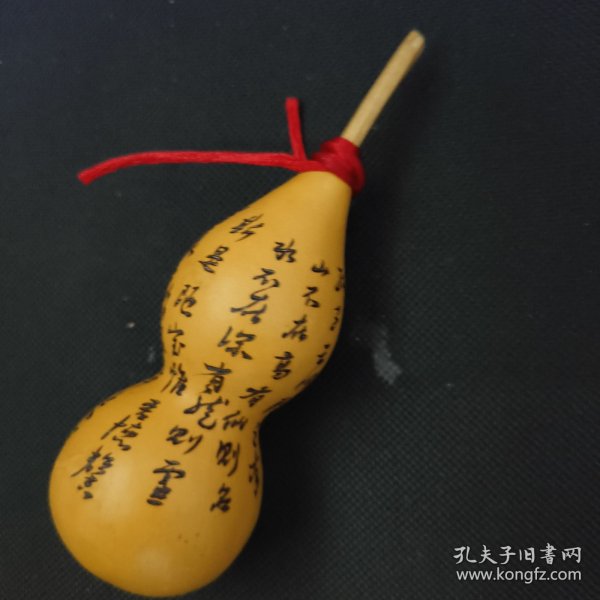 山不在高有仙则名
水不在深有龙则灵
斯是陋室惟吾德馨
孔夫子旧書网
www.kongfz.com